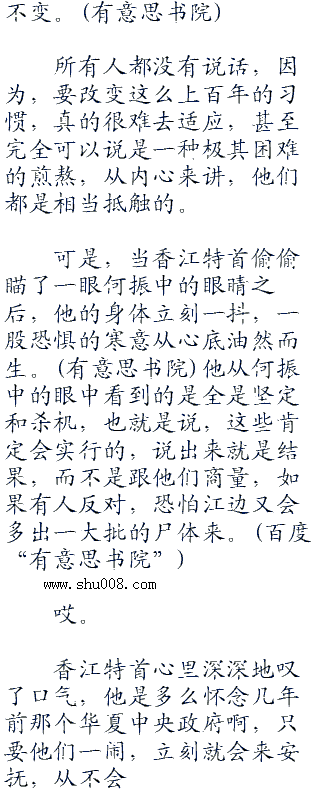 不变。(有意思书院)
所有人都没有说话，因
为，要改变这么上百年的习
惯，真的很难去适应，甚至
完全可以说是一种极其困难
的煎熬，从内心来讲，他们
都是相当抵触的。
可是，当香江特首偷偷
瞄了一眼何振中的眼睛之
后，他的身体立刻一抖，一
股恐惧的寒意从心底油然而
生。(有意思书院)他从何振
中的眼中看到的是全是坚定
和杀机，也就是说，这些肯
定会实行的，说出来就是结
果，而不是跟他们商量，如
果有人反对，恐怕江边又会
多出一大批的尸体来。(百度
“有意思书院”)
www.shu008.com
哎。
香江特首心里深深地叹
了口气，他是多么怀念几年
前那个华夏中央政府啊，只
要他们一闹，立刻就会来安
抚，从不会